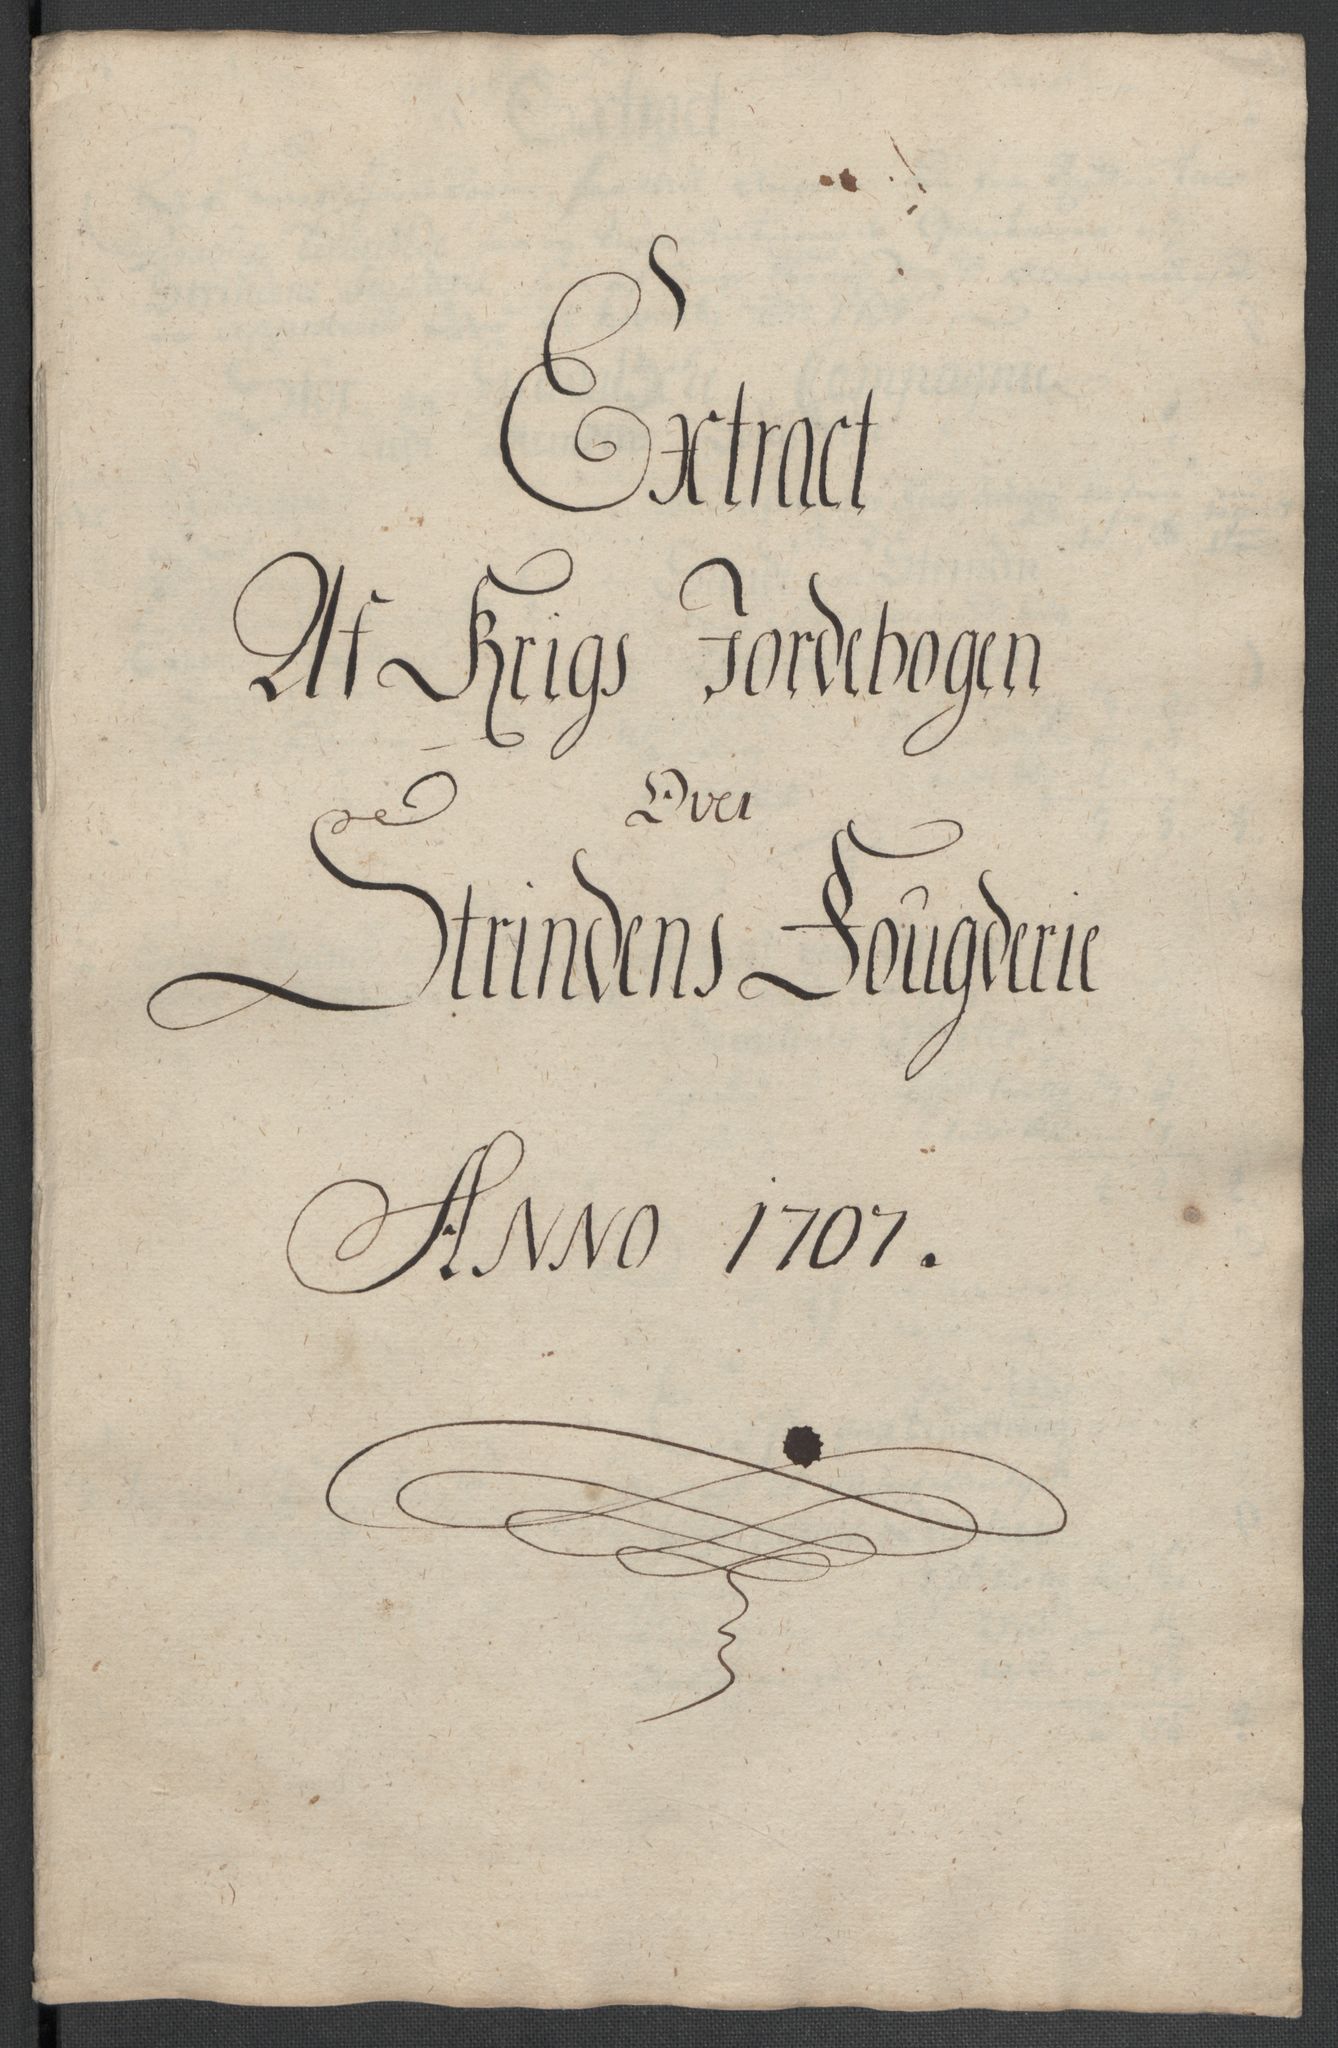 Extract
Af Krigs Jordebogen
Over
Strindens Fougderie
ANNO 1707.